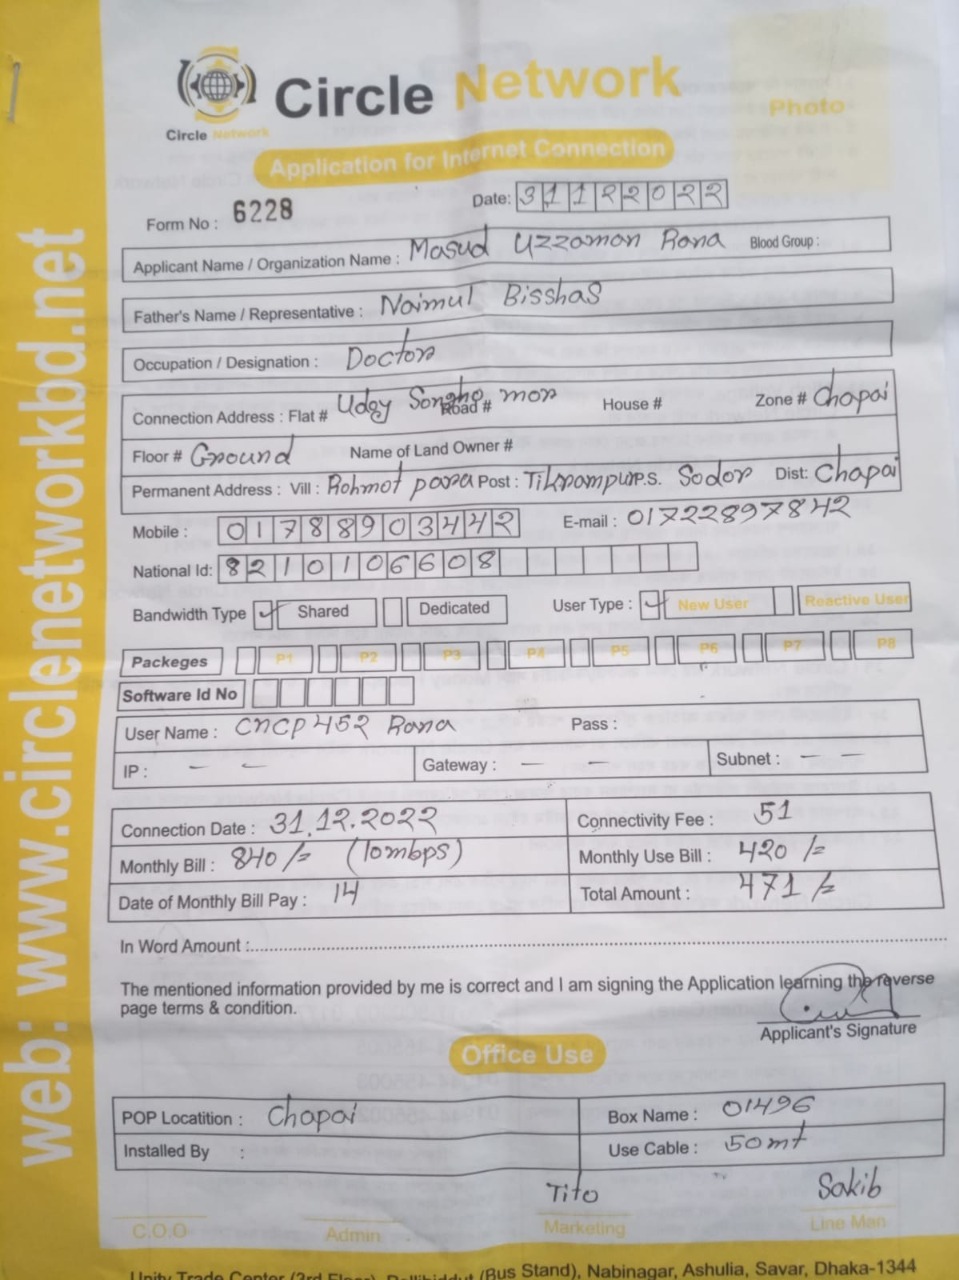 Circle Network
Circle Network
Photo
Application for Internet Connection
Form No : 6228
Date: 31122022
Applicant Name / Organization Name : Masud Uzzaman Rana Blood Group :
Father's Name / Representative : Naimul Bisshas
Occupation / Designation : Doctor
Connection Address : Flat # Udoy Songho mor Road # House # Zone # Chapai
Floor # Ground Name of Land Owner #
Permanent Address : Vill : Rohmot para Post : Tikrampur P.S. Sodor Dist: Chapai
Mobile : 01788903442 E-mail : 01722897842
National Id: 8210106608
Bandwidth Type ✓ Shared Dedicated User Type : ✓ New User Reactive User
Packeges P1 P2 P3 P4 P5 P6 P7 P8
Software Id No
User Name : CNCP452 Rana Pass :
IP : — — Gateway : — — Subnet : — —
Connection Date : 31.12.2022 Connectivity Fee : 51
Monthly Bill : 840/= (10mbps) Monthly Use Bill : 420/=
Date of Monthly Bill Pay : 14 Total Amount : 471/=
In Word Amount :
The mentioned information provided by me is correct and I am signing the Application learning the reverse
page terms & condition.
Applicant's Signature
Office Use
POP Locatition : Chapai Box Name : 01496
Installed By : Use Cable : 50mt
Tito Sakib
C.O.O Admin Marketing Line Man
Unity Trade Center (3rd Floor), (Bus Stand), Nabinagar, Ashulia, Savar, Dhaka-1344
web: www.circlenetworkbd.net